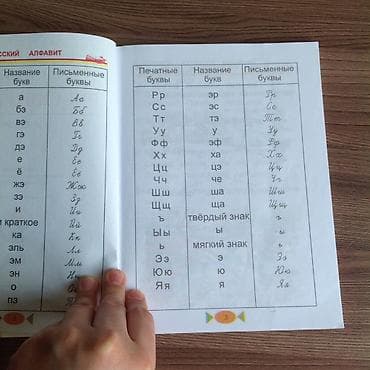 ССКИЙ АЛФАВИТ
Название букв Письменные буквы
а Аа
бэ Бб
вэ Вв
гэ Гг
дэ Дд
е Ее
ё Ёё
жэ Жж
зэ Зз
и Ии
и краткое Йй
ка Кк
эль Лл
эм Мм
эн
о
пэ
Печатные буквы Название букв Письменные буквы
Рр эр Рр
Сс эс Сс
Тт тэ Тт
Уу у Уу
Фф эф Фф
Хх ха Хх
Цц цэ Цц
Чч че Чч
Шш ша Шш
Щщ ща Щщ
ъ твёрдый знак ъ
Ыы ы ы
ь мягкий знак ь
Ээ э Ээ
Юю ю Юю
Яя я Яя
3